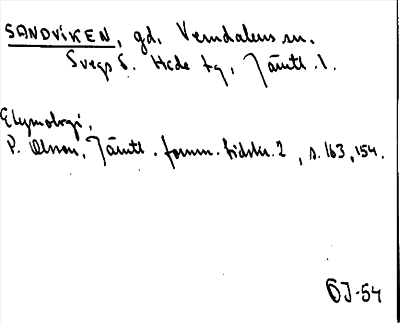 SANDVIKEN, gd, Vemdalens sn.
Svegs t. Hede tg, Jämtl. l.
Etymologi,
P. Olsson, Jämtl. fornm. tidskr. 2, s. 163, 154.
ÖJ-54